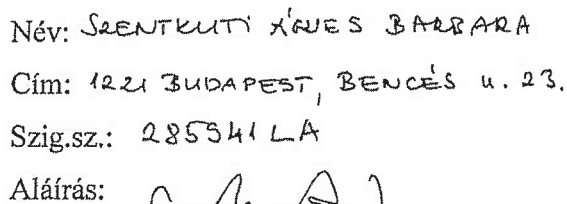 Név: SZENTKUTI ÁGNES BARBARA
Cím: 1221 BUDAPEST, BENCÉS u. 23.
Szig.sz.: 285541LA
Aláírás: